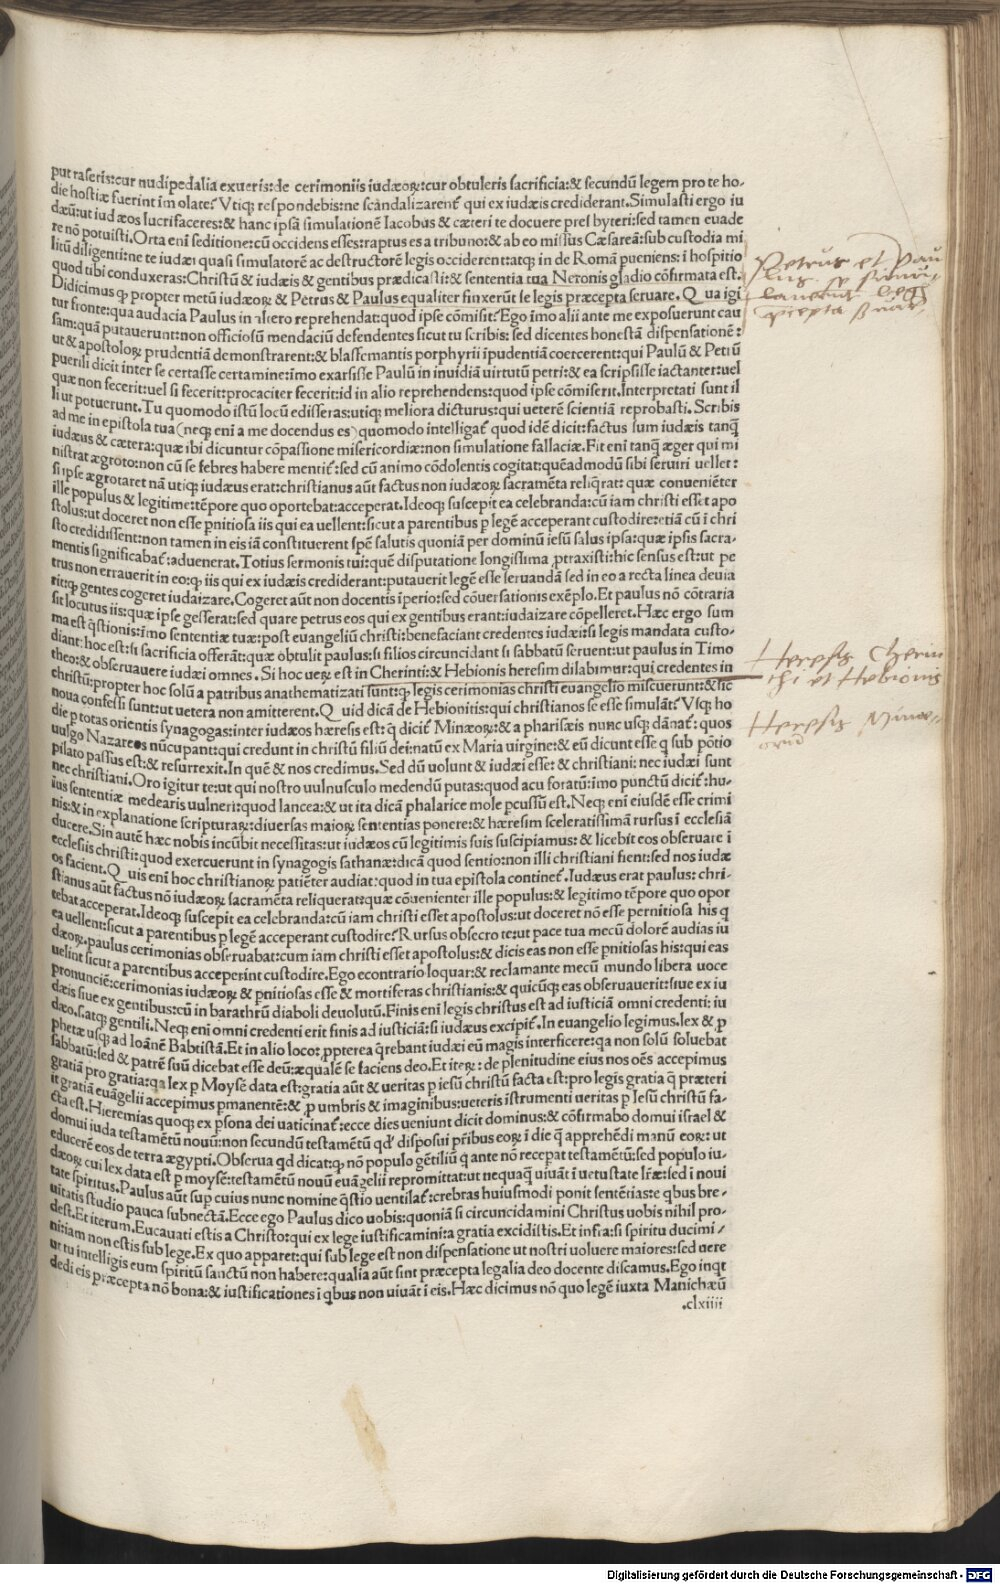 put raseris:cur nudipedalia exueris:de cerimoniis iudæoꝝ:cur obtuleris sacrificia:& secundū legem pro te ho-
die hostiæ fuerint imolate? Vtiqꝫ respondebis:ne scandalizarent̄ qui ex iudæis crediderant.Simulasti ergo iu
dæū:ut iudæos lucrifaceres:& hanc ipsā simulationē Iacobus & cæteri te docuere presbyteri:sed tamen euade
re nō potuisti.Orta eni seditione:cū occidens esses:raptus es a tribuno:& ab eo missus Cæsareā:sub custodia mi
litū diligenti:ne te iudæi quasi simulatorē ac destructorē legis occiderent:atqꝫ in de Romā pueniens:i hospitio
quod tibi conduxeras:Christū & iudæis & gentibus prædicasti:& sententia tua Neronis gladio cōfirmata est.
Didicimus ꝙ propter metū iudæoꝝ & Petrus & Paulus equaliter finxerūt se legis præcepta seruare. Q ua igi
tur fronte:qua audacia Paulus in altero reprehendat:quod ipse cōmisit?Ego īmo alii ante me exposuerunt cau
sam:quā putauerunt:non officiosū mendaciū defendentes sicut tu scribis: sed dicentes honestā dispensationē:
ut & apostoloꝝ prudentiā demonstrarent:& blassemantis porphyrii īpudentiā coercerent:qui Paulū & Petrū
puerili dicit inter se certasse certamine:īmo exarsisse Paulū in inuidiā uirtutū petri:& ea scripsisse iactanter:uel
quæ non fecerit:uel si fecerit:procaciter fecerit:id in alio reprehendens:quod ipse cōmiserit.Interpretati sunt il
li ut potuerunt. Tu quomodo istū locū edisseras:utiqꝫ meliora dicturus:qui ueterē scientiā reprobasti. Scribis
ad me in epistola tua (neqꝫ eni a me docendus es) quomodo intelligat̄ quod idē dicit:factus sum iudæis tanq̄
iudæus & cætera:quæ ibi dicuntur cōpassione misericordiæ:non simulatione fallaciæ.Fit eni tanq̄ æger qui mi
nistrat ægroto:non cū se febres habere mentit̄:sed cū animo cōdolentis cogitat:quēadmodū sibi seruiri uellet:
si ipse ægrotaret nā utiqꝫ iudæus erat:christianus aūt factus non iudæoꝝ sacramēta reliq̄rat: quæ conueniēter
ille populus & legitime:tēpore quo oportebat:acceperat.Ideoqꝫ suscepit ea celebranda:cū iam christi esset apo
stolus:ut doceret non esse pnitiosa iis qui ea uellent:sicut a parentibus p legē acceperant custodire:etiā cū i chri
sto credidissent:non tamen in eis iā constituerent spē salutis quoniā per dominū iesū salus ipsa:quæ ipsis sacra-
mentis significabat̄:aduenerat. Totius sermonis tui:quē disputatione longissima ptraxisti:hic sensus est:ut pe
trus non errauerit in eo:ꝙ iis qui ex iudæis crediderant:putauerit legē esse seruandā sed in eo a recta linea deuia
rit:ꝙ gentes cogeret iudaizare.Cogeret aūt non docentis īperio:sed cōuersationis exēplo.Et paulus nō cōtraria
sit locutus iis:quæ ipse gesserat:sed quare petrus eos qui ex gentibus erant:iudaizare cōpelleret.Hæc ergo sum
ma est q̄stionis:īmo sententiæ tuæ:post euangeliū christi:benefaciant credentes iudæi:si legis mandata custo-
diant:hoc est:si sacrificia offerāt:quæ obtulit paulus:si filios circuncidant si sabbatū seruent:ut paulus in Timo
theo:& obseruauere iudæi omnes. Si hoc ueꝝ est in Cherinti:& Hebionis heresim dilabimur:qui credentes in
christū:propter hoc solū a patribus anathematizati sunt:ꝙ legis cerimonias christi euangelio miscuerunt:& sic
noua confessi sunt:ut uetera non amitterent. Q uid dicā de Hebionitis:qui christianos se esse simulāt? Vsqꝫ ho
die p totas orientis synagogas:inter iudæos hæresis est:q̄ dicit̄ Minæoꝝ:& a pharisæis nunc usqꝫ dānat̄: quos
uulgo Nazareos nūcupant:qui credunt in christū filiū dei:natū ex Maria uirgine:& eū dicunt esse q̄ sub pōtio
pilato passus est:& resurrexit.In quē & nos credimus. Sed dū uolunt & iudæi esse: & christiani: nec iudæi sunt
nec christiani. Oro igitur te:ut qui nostro uulnusculo medendū putas:quod acu foratū:īmo punctū dicit̄:hu-
ius sententiæ medearis uulneri:quod lancea:& ut ita dicā phalarice mole pcussū est. Neqꝫ eni eiusdē esse crimi
nis:& in explanatione scripturaꝝ:diuersas maioꝝ sententias ponere:& hæresim sceleratissimā rursus ī ecclesiā
ducere.Sin autē hæc nobis incūbit necessitas:ut iudæos cū legitimis suis suscipiamus:& licebit eos obseruare ī
ecclesiis christi:quod exercuerunt in synagogis sathanæ:dicā quod sentio:non illi christiani fient:sed nos iudæ
os facient. Q uis eni hoc christianoꝝ patiēter audiat:quod in tua epistola continet̄.Iudæus erat paulus: chri-
stianus aūt factus nō iudæoꝝ sacramēta reliquerat:quæ cōuenienter ille populus:& legitimo tēpore quo opor
tebat acceperat.Ideoqꝫ suscepit ea celebranda:cū iam christi esset apostolus:ut doceret nō esse pernitiosa his q̄
ea uellent:sicut a parentibus p legē acceperant custodire? Rursus obsecro te:ut pace tua mecū dolorē audias iu
dæoꝝ.paulus cerimonias obseruabat:cum iam christi esset apostolus:& dicis eas non esse pnitiosas his:qui eas
uelint sicut a parentibus acceperint custodire. Ego econtrario loquar:& reclamante mecū mundo libera uoce
pronunciē:cerimonias iudæoꝝ & pnitiosas esse & mortiferas christianis:& quicūqꝫ eas obseruauerit:siue ex iu
dæis siue ex gentibus:cū in barathrū diaboli deuolutū. Finis eni legis christus est ad iusticiā omni credenti: iu
dæo.s.atqꝫ gentili. Neqꝫ eni omni credenti erit finis ad iusticiā:si iudæus excipit̄.In euangelio legimus.lex & p
phetæ usqꝫ ad Ioānē Babtistā.Et in alio loco: ppterea q̄rebant iudæi eū magis interficere:qa non solū soluebat
sabbatū:sed & patrē suū dicebat esse deū:æqualē se faciens deo.Et iteꝝ: de plenitudine eius nos oēs accepimus
gratiā pro gratia:qa lex p Moysē data est:gratia aūt & ueritas p iesū christū facta est:pro legis gratia q̄ præteri
it gratiā euāgelii accepimus pmanentē:& p umbris & imaginibus:ueteris īstrumenti ueritas p Iesū christū fa-
cta est. Hieremias quoqꝫ ex psona dei uaticinat̄:ecce dies ueniunt dicit dominus:& cōfirmabo domui israel &
domui iuda testamētū nouū:non secundū testamētū qd' disposui pribus eoꝝ ī die q̄ apprehēdi manū eoꝝ: ut
educerē eos de terra ægypti. Obserua qd dicat:ꝙ nō populo gētiliū q̄ ante nō recepat testamētū:sed populo iu-
dæoꝝ cui lex data est p moysē:testamētū nouū euāgelii repromittat:ut nequaq̄ uiuāt ī uetustate lræ:sed ī noui
tate spiritus. Paulus aūt sup cuius nunc nomine q̄stio uentilat̄:crebras huiusmodi ponit sentētias:e qbus bre-
uitatis studio pauca subnectā. Ecce ego Paulus dico uobis:quoniā si circuncidamini Christus uobis nihil pro-
dest.Et iterum. Eucauati estis a Christo:qui ex lege iustificamini:a gratia excidistis.Et infra:si spiritu ducimi /
ni:iam non estis sub lege. Ex quo apparet:qui sub lege est non dispensatione ut nostri uoluere maiores:sed uere
ut tu intelligis eum spiritū sanctū non habere:qualia aūt sint præcepta legalia deo docente discamus.Ego inqt
dedi eis præcepta nō bona:& iustificationes ī qbus non uiuāt ī eis. Hæc dicimus nō quo legē iuxta Manichæū
.clxiiii
Petrus et Pau
lus se simu-
lauerūt legis
præcepta ẞuare
Heresis Cherin
thi et Hebionis
Heresis Minæ-
orū
Digitalisierung gefördert durch die Deutsche Forschungsgemeinschaft - DFG